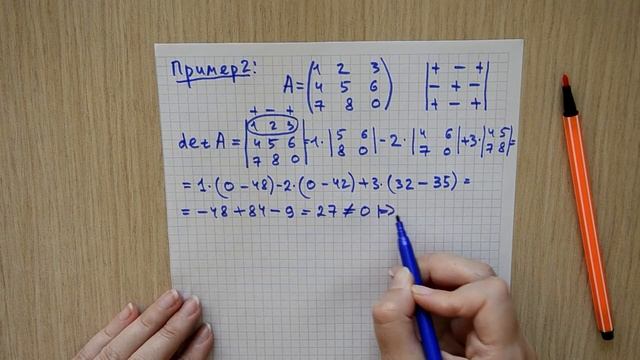 Пример 2:
A = (1 2 3
4 5 6
7 8 0)
|+ − +
− + −
+ − +|
+ − +
det A = |1 2 3
4 5 6
7 8 0| = 1· |5 6
8 0| − 2· |4 6
7 0| + 3· |4 5
7 8| =
= 1·(0 − 48) − 2·(0 − 42) + 3·(32 − 35) =
= −48 + 84 − 9 = 27 ≠ 0 ⇒